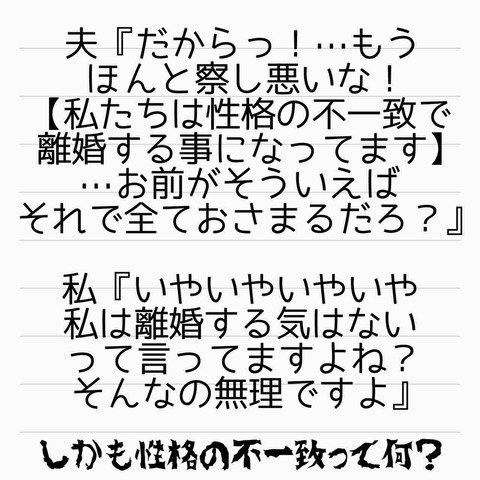 夫『だからっ！…もう
ほんと察し悪いな！
【私たちは性格の不一致で
離婚する事になってます】
…お前がそういえば
それで全ておさまるだろ？』
私『いやいやいやいや
私は離婚する気はない
って言ってますよね？
そんなの無理ですよ』
しかも性格の不一致って何？